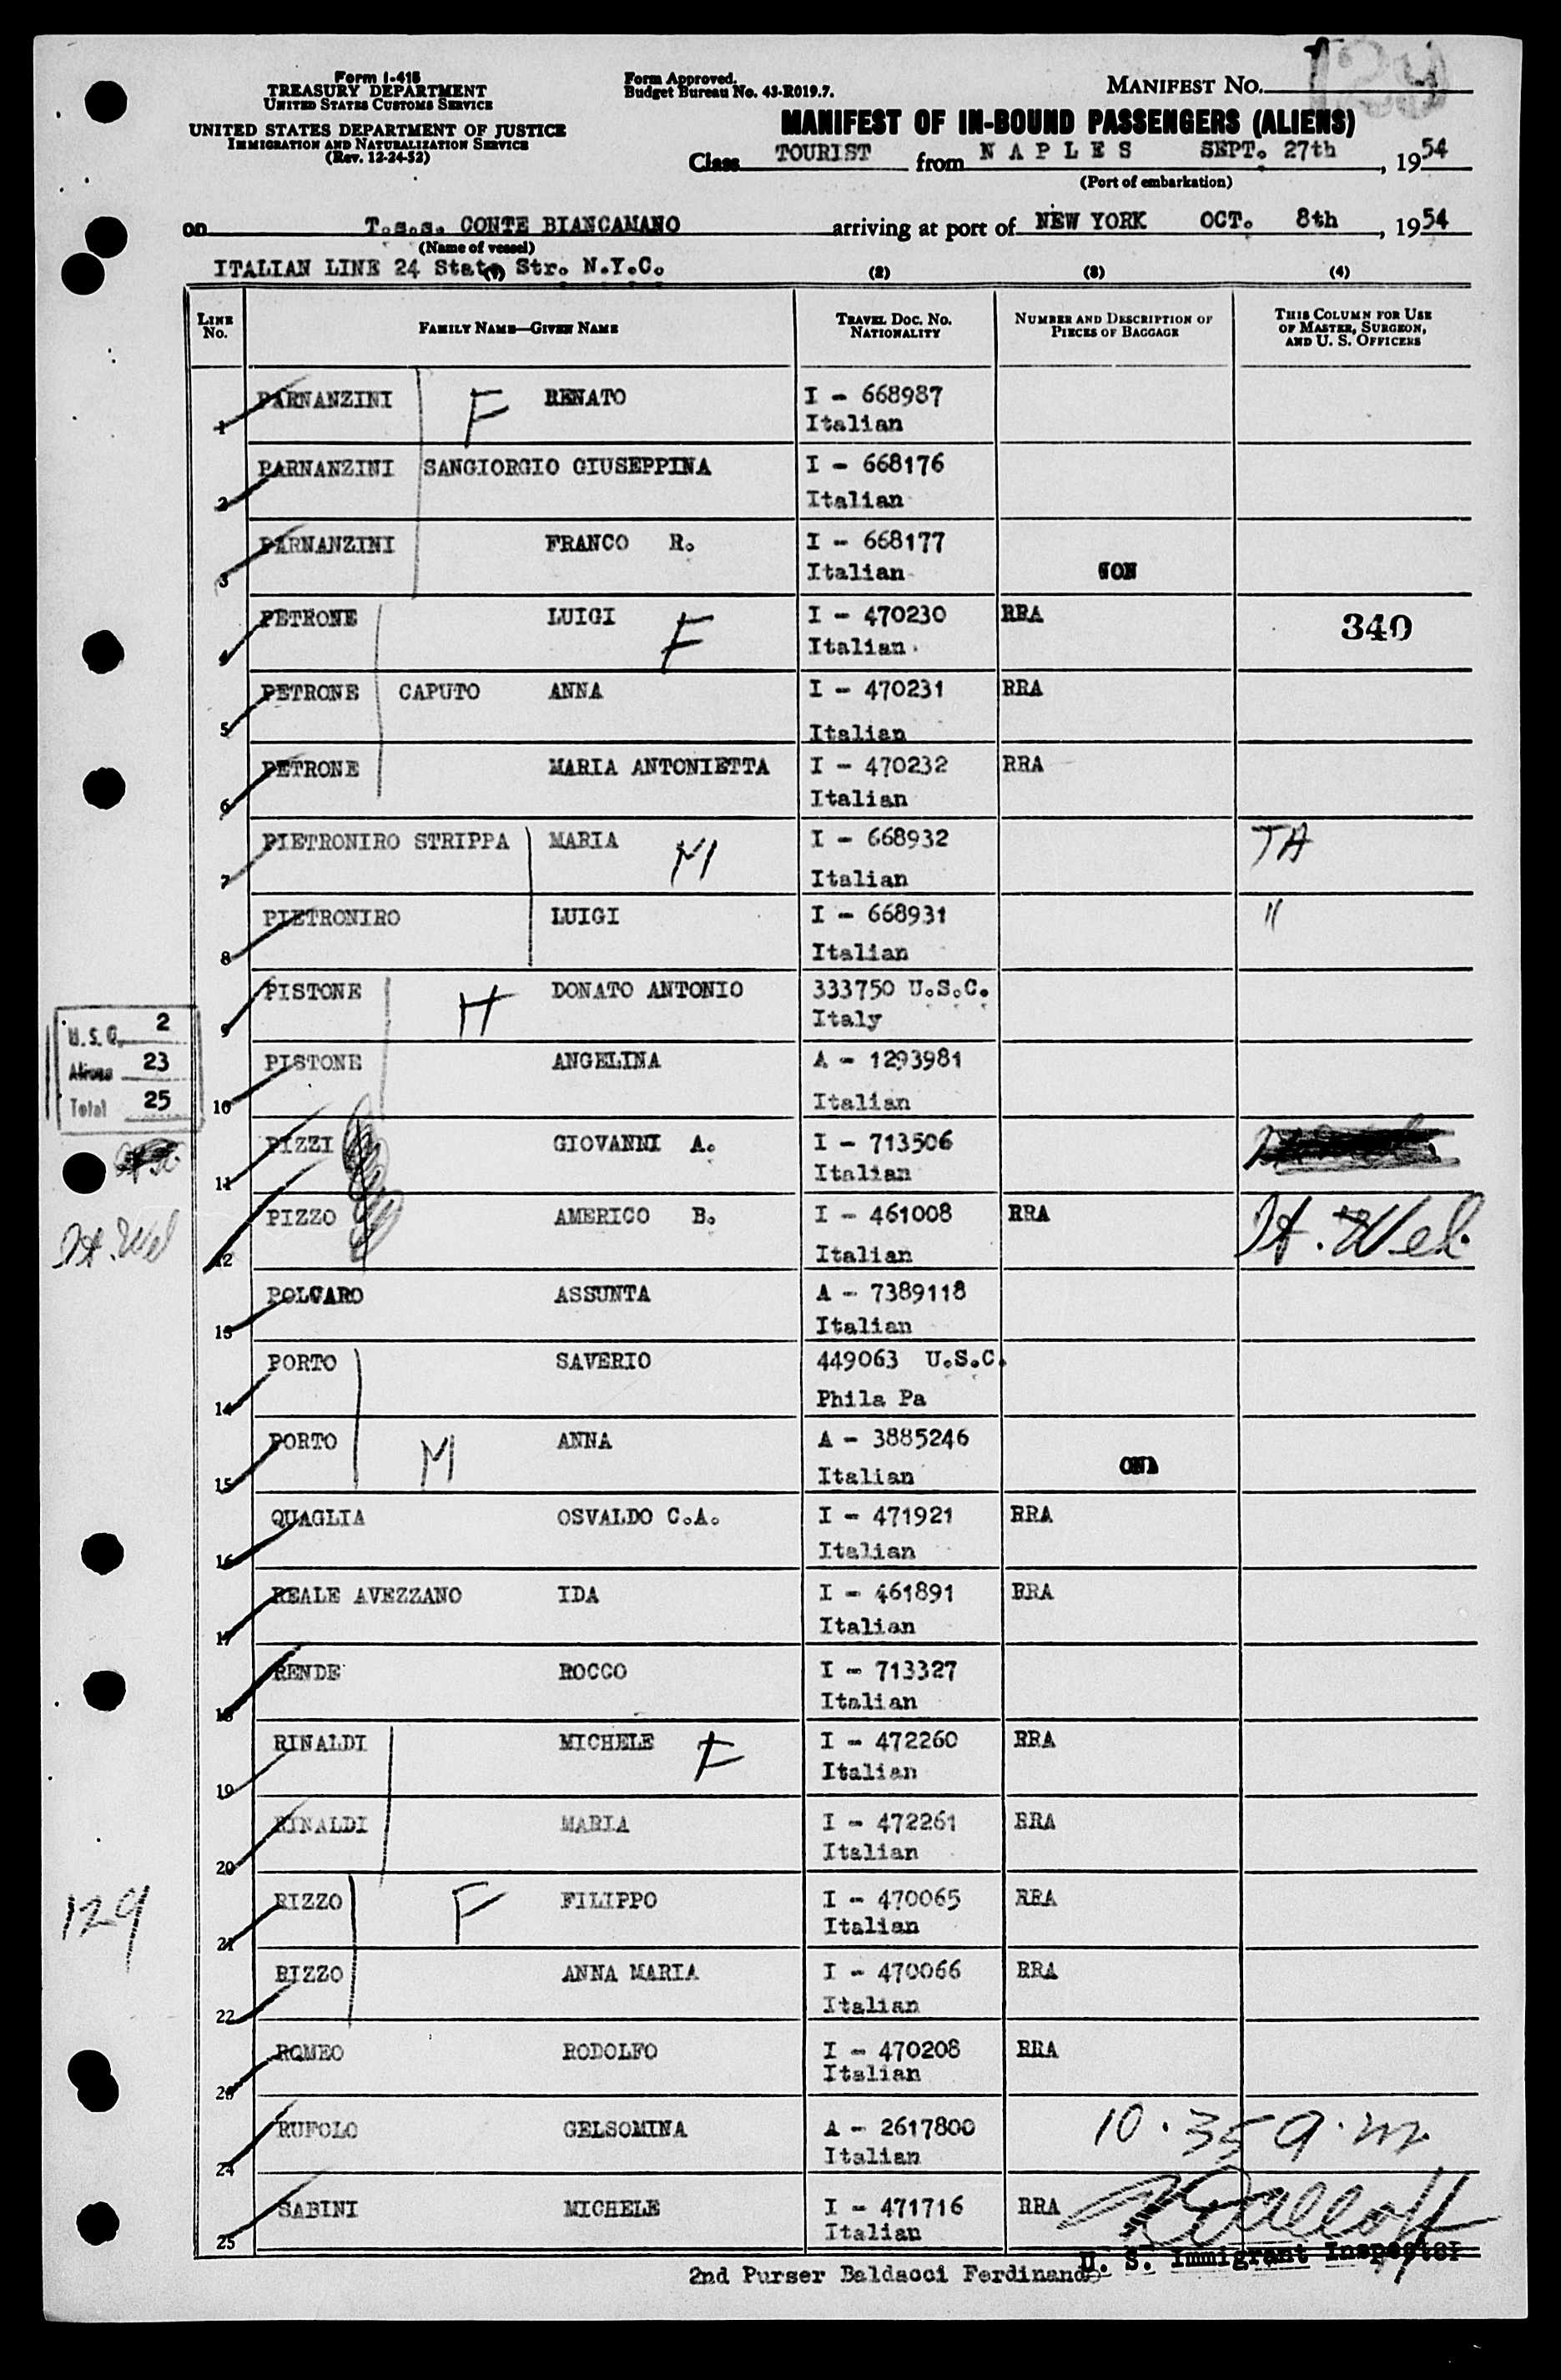 Form I-415
TREASURY DEPARTMENT
UNITED STATES CUSTOMS SERVICE
UNITED STATES DEPARTMENT OF JUSTICE
IMMIGRATION AND NATURALIZATION SERVICE
(Rev. 12-24-52)
Form Approved.
Budget Bureau No. 43-R019.7.
MANIFEST NO.
MANIFEST OF IN-BOUND PASSENGERS (ALIENS)
Class TOURIST from NAPLES SEPT. 27th, 1954
(Port of embarkation)
on T.s.s. CONTE BIANCAMANO arriving at port of NEW YORK OCT. 8th, 1954
(Name of vessel)
ITALIAN LINE 24 State Str. N.Y.C. (2) (3) (4)
LINE NO. FAMILY NAME—GIVEN NAME TRAVEL DOC. NO. NATIONALITY NUMBER AND DESCRIPTION OF PIECES OF BAGGAGE THIS COLUMN FOR USE OF MASTER, SURGEON, AND U. S. OFFICERS
1 PARNANZINI F RENATO I - 668987
Italian
2 PARNANZINI SANGIORGIO GIUSEPPINA I - 668176
Italian
3 PARNANZINI FRANCO R. I - 668177
Italian
4 PETRONE LUIGI F I - 470230 RRA 340
Italian
5 PETRONE CAPUTO ANNA I - 470231 RRA
Italian
6 PETRONE MARIA ANTONIETTA I - 470232 RRA
Italian
7 PIETRONIRO STRIPPA MARIA M I - 668932 TA
Italian
8 PIETRONIRO LUIGI I - 668931 "
Italian
9 PISTONE H DONATO ANTONIO 333750 U.S.C.
Italy
U.S.C. 2
Aliens 23
Total 25
10 PISTONE ANGELINA A - 1293981
Italian
11 PIZZI GIOVANNI A. I - 713506
Italian
It. Wel
12 PIZZO AMERICO B. I - 461008 RRA It. Wel.
Italian
13 POLCARO ASSUNTA A - 7389118
Italian
14 PORTO SAVERIO 449063 U.S.C.
Phila Pa
15 PORTO M ANNA A - 3885246
Italian
16 QUAGLIA OSVALDO C.A. I - 471921 RRA
Italian
17 REALE AVEZZANO IDA I - 461891 RRA
Italian
18 RENDE ROCCO I - 713327
Italian
19 RINALDI MICHELE F I - 472260 RRA
Italian
20 RINALDI MARIA I - 472261 RRA
Italian
129
21 RIZZO F FILIPPO I - 470065 RRA
Italian
22 RIZZO ANNA MARIA I - 470066 RRA
Italian
23 ROMEO RODOLFO I - 470208 RRA
Italian
24 RUFOLO GELSOMINA A - 2617800 10.35 a.m.
Italian
25 SABINI MICHELE I - 471716 RRA
Italian
U. S. Immigrant Inspector
2nd Purser Baldacci Ferdinando